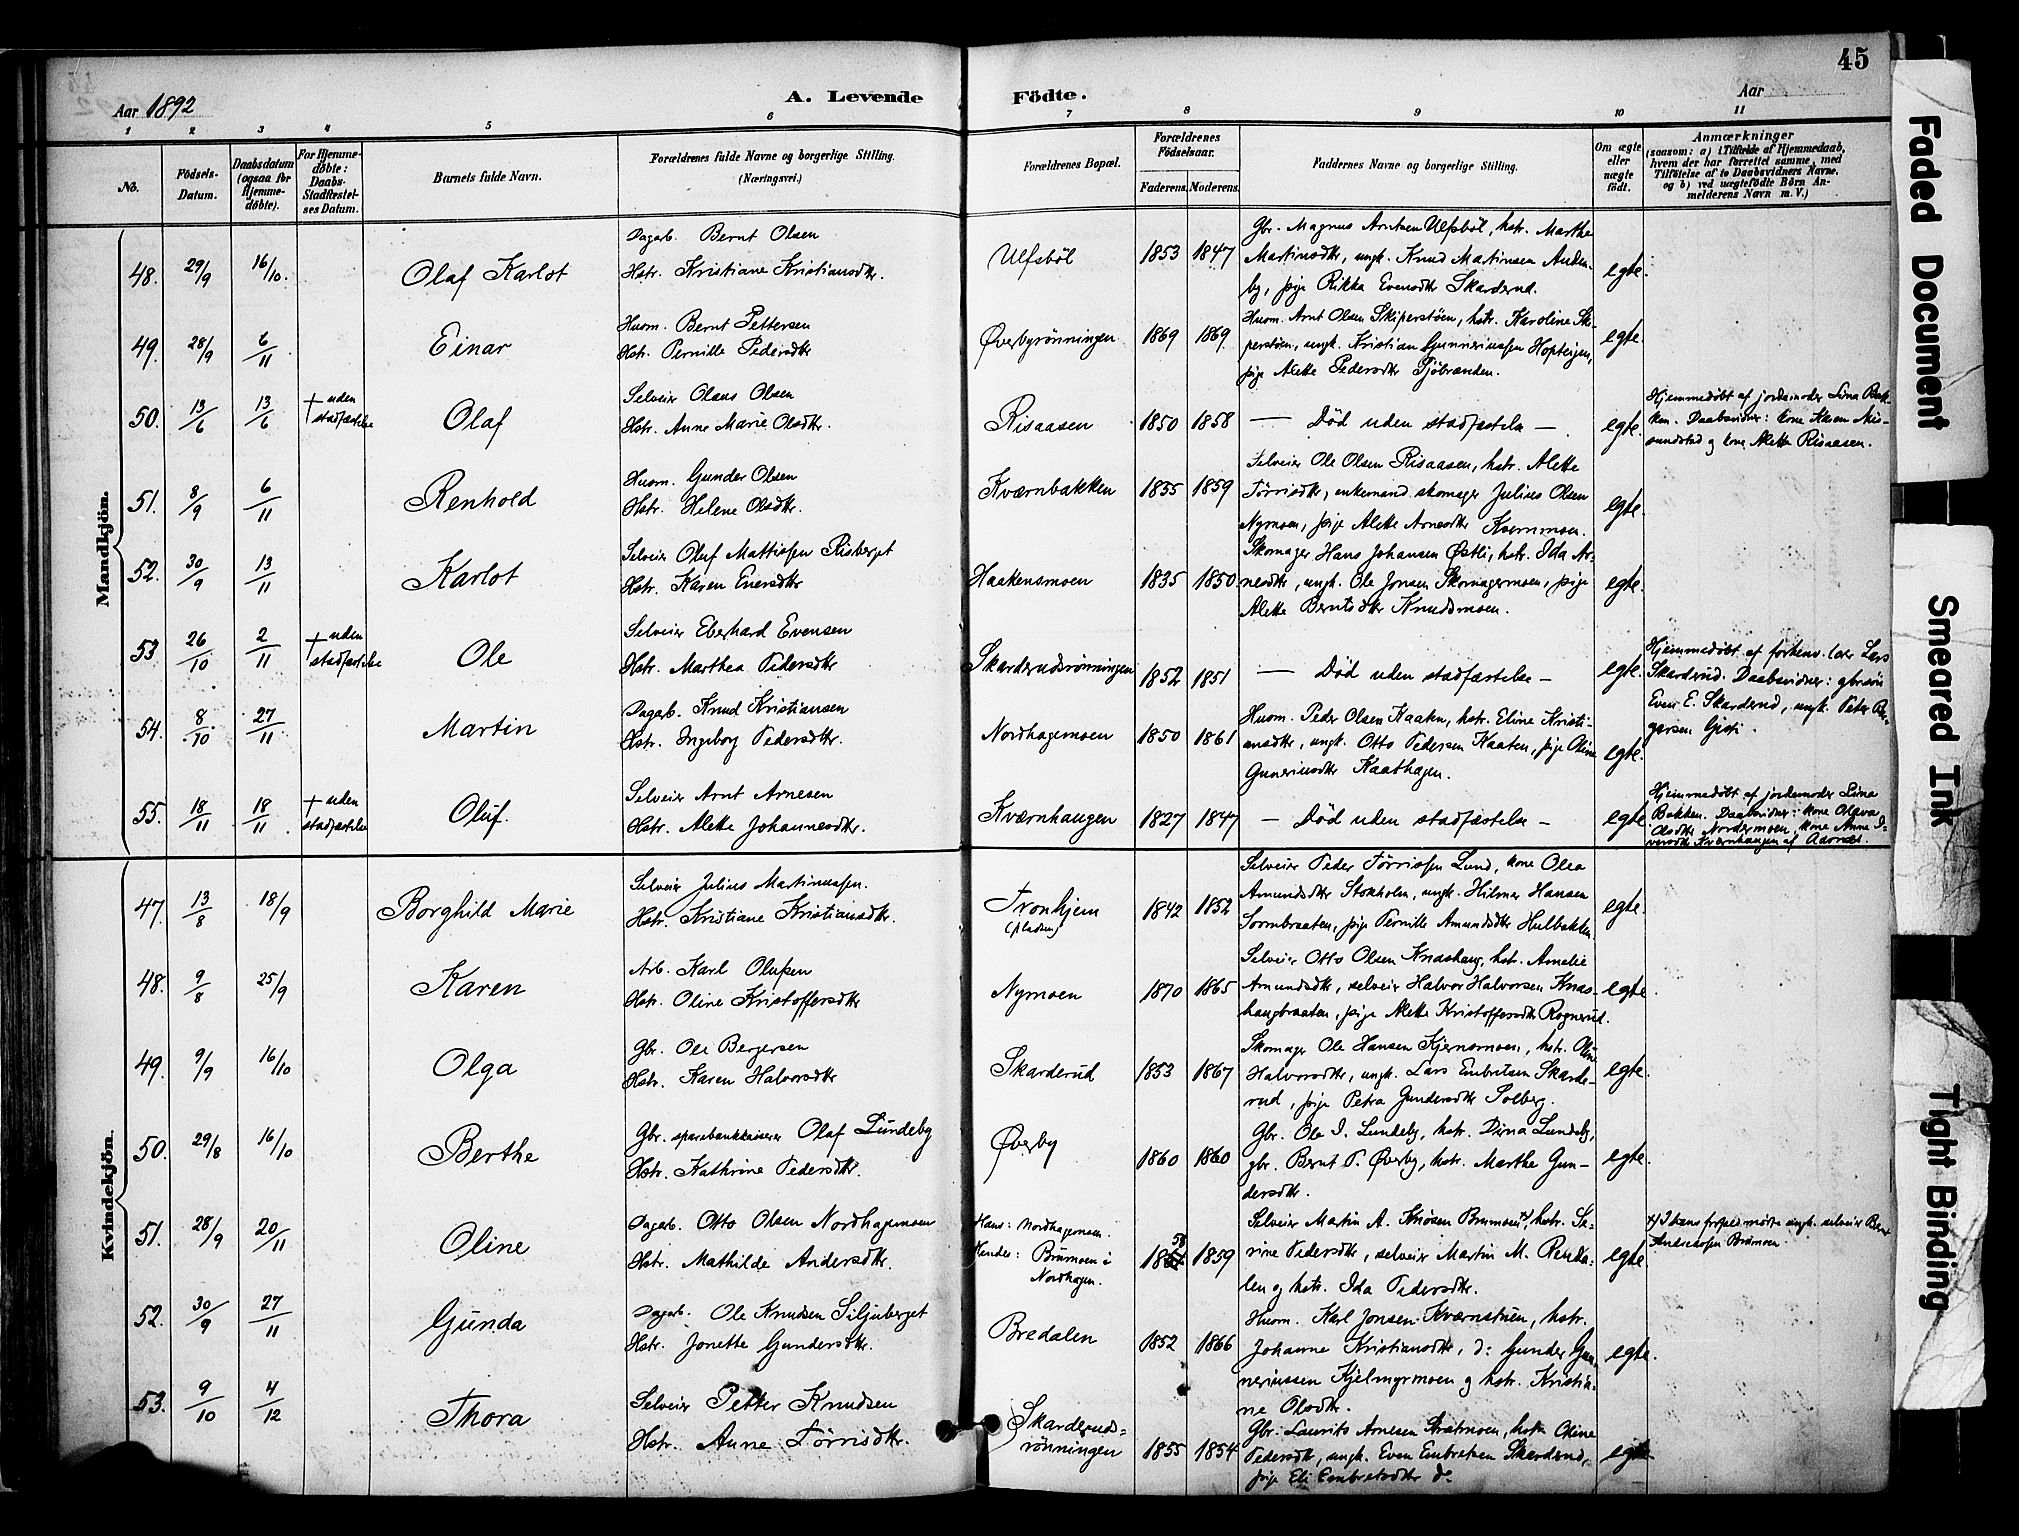 45
Aar 1892
A. Levende Födte.
Aar
1 2 3 4 5 6 7 8 9 10 11
No.
Födsels-Datum.
Daabsdatum (ogsaa for Hjemme-döbte).
For Hjemme-döbte: Daabs-Stadfæstel-ses Datum.
Barnets fulde Navn.
Forældrenes fulde Navne og borgerlige Stilling. (Næringsvei.)
Forældrenes Bopæl.
Forældrenes Födselsaar.
Faderens. Moderens.
Faddernes Navne og borgerlige Stilling.
Om ægte eller uægte födt.
Anmærkninger
(saasom: a) i Tilfælde af Hjemmedaab,
hvem der har forrettet samme, med
Tilföielse af to Daabsvidners Navne,
og b) ved uægtefödte Börn An-
melderens Navn m. V.)
Mandkjön.
48. 29/9 16/10. Olaf Karlot
Dagarb. Bernt Olsen
Hstr. Kristiane Kristiansdtr.
Ulfsböl 1853 1847
Gbr. Magnus Arntsen Ulfsböl, hstr. Marthe
Martinsdtr, ungk. Knud Martinsen Anden-
by, pige Rikka Evensdtr Skarderud.
egte.
49. 28/9 6/11 Einar
Husm. Bernt Pettersen
Hstr. Pernille Pedersdtr
Øverbyrönningen 1869 1869
Husm. Arnt Olsen Skiperstöen, hstr. Karoline Ski-
perstöen, ungk. Kristian Gunneriussen Hopteigen,
pige Alette Pedersdtr Tjöbranden.
egte.
50. 13/6 13/6 † uden stadfæstelse Olaf
Selveier Olaus Olsen
Hstr. Anne Marie Olsdtr.
Risaasen 1850 1858
— Död uden stadfæstelse —
egte.
Hjemmedöbt af jordemoder Lina Bak-
ken. Daabsvidner: kone Karen
og kone Alette Risaasen.
51. 8/9 6/11 Renhold
Husm. Gunder Olsen
Hstr. Helene Olsdtr.
Kværnbakken 1855 1859
Selveier Ole Olsen Risaasen, hstr. Alette
Törrisdtr, enkemand skomager Julius Olsen
Nymoen, pige Alette Arnesdtr Kvernmoen.
egte.
52. 30/9 13/11 Karlot
Selveier Oluf Mattissen Risberget
Hstr. Karen Enersdtr
Haakensmoen 1835 1850
Skomager Hans Johansen Östli, hstr. Ida Ar-
nesdtr, ungk. Ole Jonsen Skomagermoen, pige
Alette Berntsdtr Knudsmoen.
egte.
53 26/10 2/11 † uden stadfæstelse Ole
Selveier Eberhard Evensen
Hstr. Marthea Pedersdtr
Skarderudsrönningen 1852 1851
— Död uden stadfæstelse —
egte.
Hjemmedöbt af forhenv. lær Lars
Skarderud. Daabsvidner: gbrsön
Even E. Skarderud, ungk. Peter Ber-
gersen
54. 8/10 27/11 Martin
Dagarb. Knud Kristiansen
Hstr. Ingeborg Pedersdtr.
Nordhagemoen 1850 1861
Husm. Peder Olsen Kaaten, hstr. Eline Kristi-
ansdtr, ungk. Otto Pedersen Kaaten, pige Oline
Gunerinsdtr Kaathagen.
egte.
55. 18/11 18/11 † uden stadfæstelse Oluf.
Selveier Arnt Arnesen
Hstr. Alette Johannesdtr.
Kværnhaugen 1827 1847
— Död uden stadfæstelse —
egte
Hjemmedöbt af jordemoder Lina
Bakken. Daabsvidner: kone Oleava
Olsdtr Nordermoen, kone Anne I-
versdtr Kvernhaugen af Aasnæs.
Kvindekjön.
47. 13/8 18/9 Borghild Marie
Selveier Julius Martinussen.
Hstr. Kristiane Kristiansdtr.
Tronhjem (pladsen) 1842 1852
Selveier Peder Törrissen Lund, kone Olea
Amundsdtr Stokholm, ungk. Hilmar Hansen
Sormbraaten, pige Pernille Amundsdtr Hulbakken.
egte.
48. 9/8 25/9 Karen
Arb. Karl Olufsen
Hstr. Oline Kristoffersdtr
Nymoen 1870 1865
Selveier Otto Olsen Knashaug, hstr. Amelie
Amundsdtr, selveier Halvor Halvorsen Knas-
haugbraaten, pige Alette Kristoffersdtr Rognerud.
egte.
49. 9/9 16/10 Olga
Gbr. Ole Bergersen
Hstr. Karen Halvorsdtr
Skarderud 1853 1867
Skomager Ole Hansen Kjernsmoen, hstr. Oline
Halvorsdtr, ungk. Lars Embretsen Skarde-
rud, pige Petra Gundersdtr Solberg.
egte.
50. 29/8 16/10 Berthe
Gbr. sparebankkaserer Olaf Lundeby
Hstr. Kathrine Pedersdtr.
Øverby 1860 1860
Gbr. Ole I. Lundeby, hstr. Dina Lundeby,
gbr. Bernt P. Øverby, hstr. Marthe Gun-
dersdtr.
egte.
51. 28/9 20/11 Oline
Dagarb. Otto Olsen Nordhagemoen
Hstr. Mathilde Andersdtr.
Hans: Nordhagemoen.
Hendes: Brumoen i
Nordhagen.
1858 1859
Selveier Martin A. Knösen Brumoen x), hstr. Se-
rine Pedersdtr, selveier Martin M. Renda-
len og hstr. Ida Pedersdtr.
egte.
x) I hans frafald mödte ungk. selveier Bernt
Andreassen Brumoen
52. 30/9 27/11 Gunda
Dagarb. Ole Knudsen Siljuberget
Hstr. Jonette Gundersdtr.
Bredalen 1852 1866
Husm. Karl Jonsen Kværnstuen, hstr.
Johanne Kristiansdtr, d: Gunder Gun-
neriussen Kjelmyrmoen og hstr. Kristia-
ne Olsdtr.
egte.
53. 9/10 4/12 Thora
Selveier Petter Knudsen
Hstr. Anne Törrisdtr.
Skarderuds-
rönningen 1855 1854
Gbr. Laurits Arnesen Arstmoen, hstr Oline
Pedersdtr, ungk. Even Embretsen Skarderud,
pige Eli Embretsdtr do
egte
Faded Document
Smeared Ink
Tight Binding